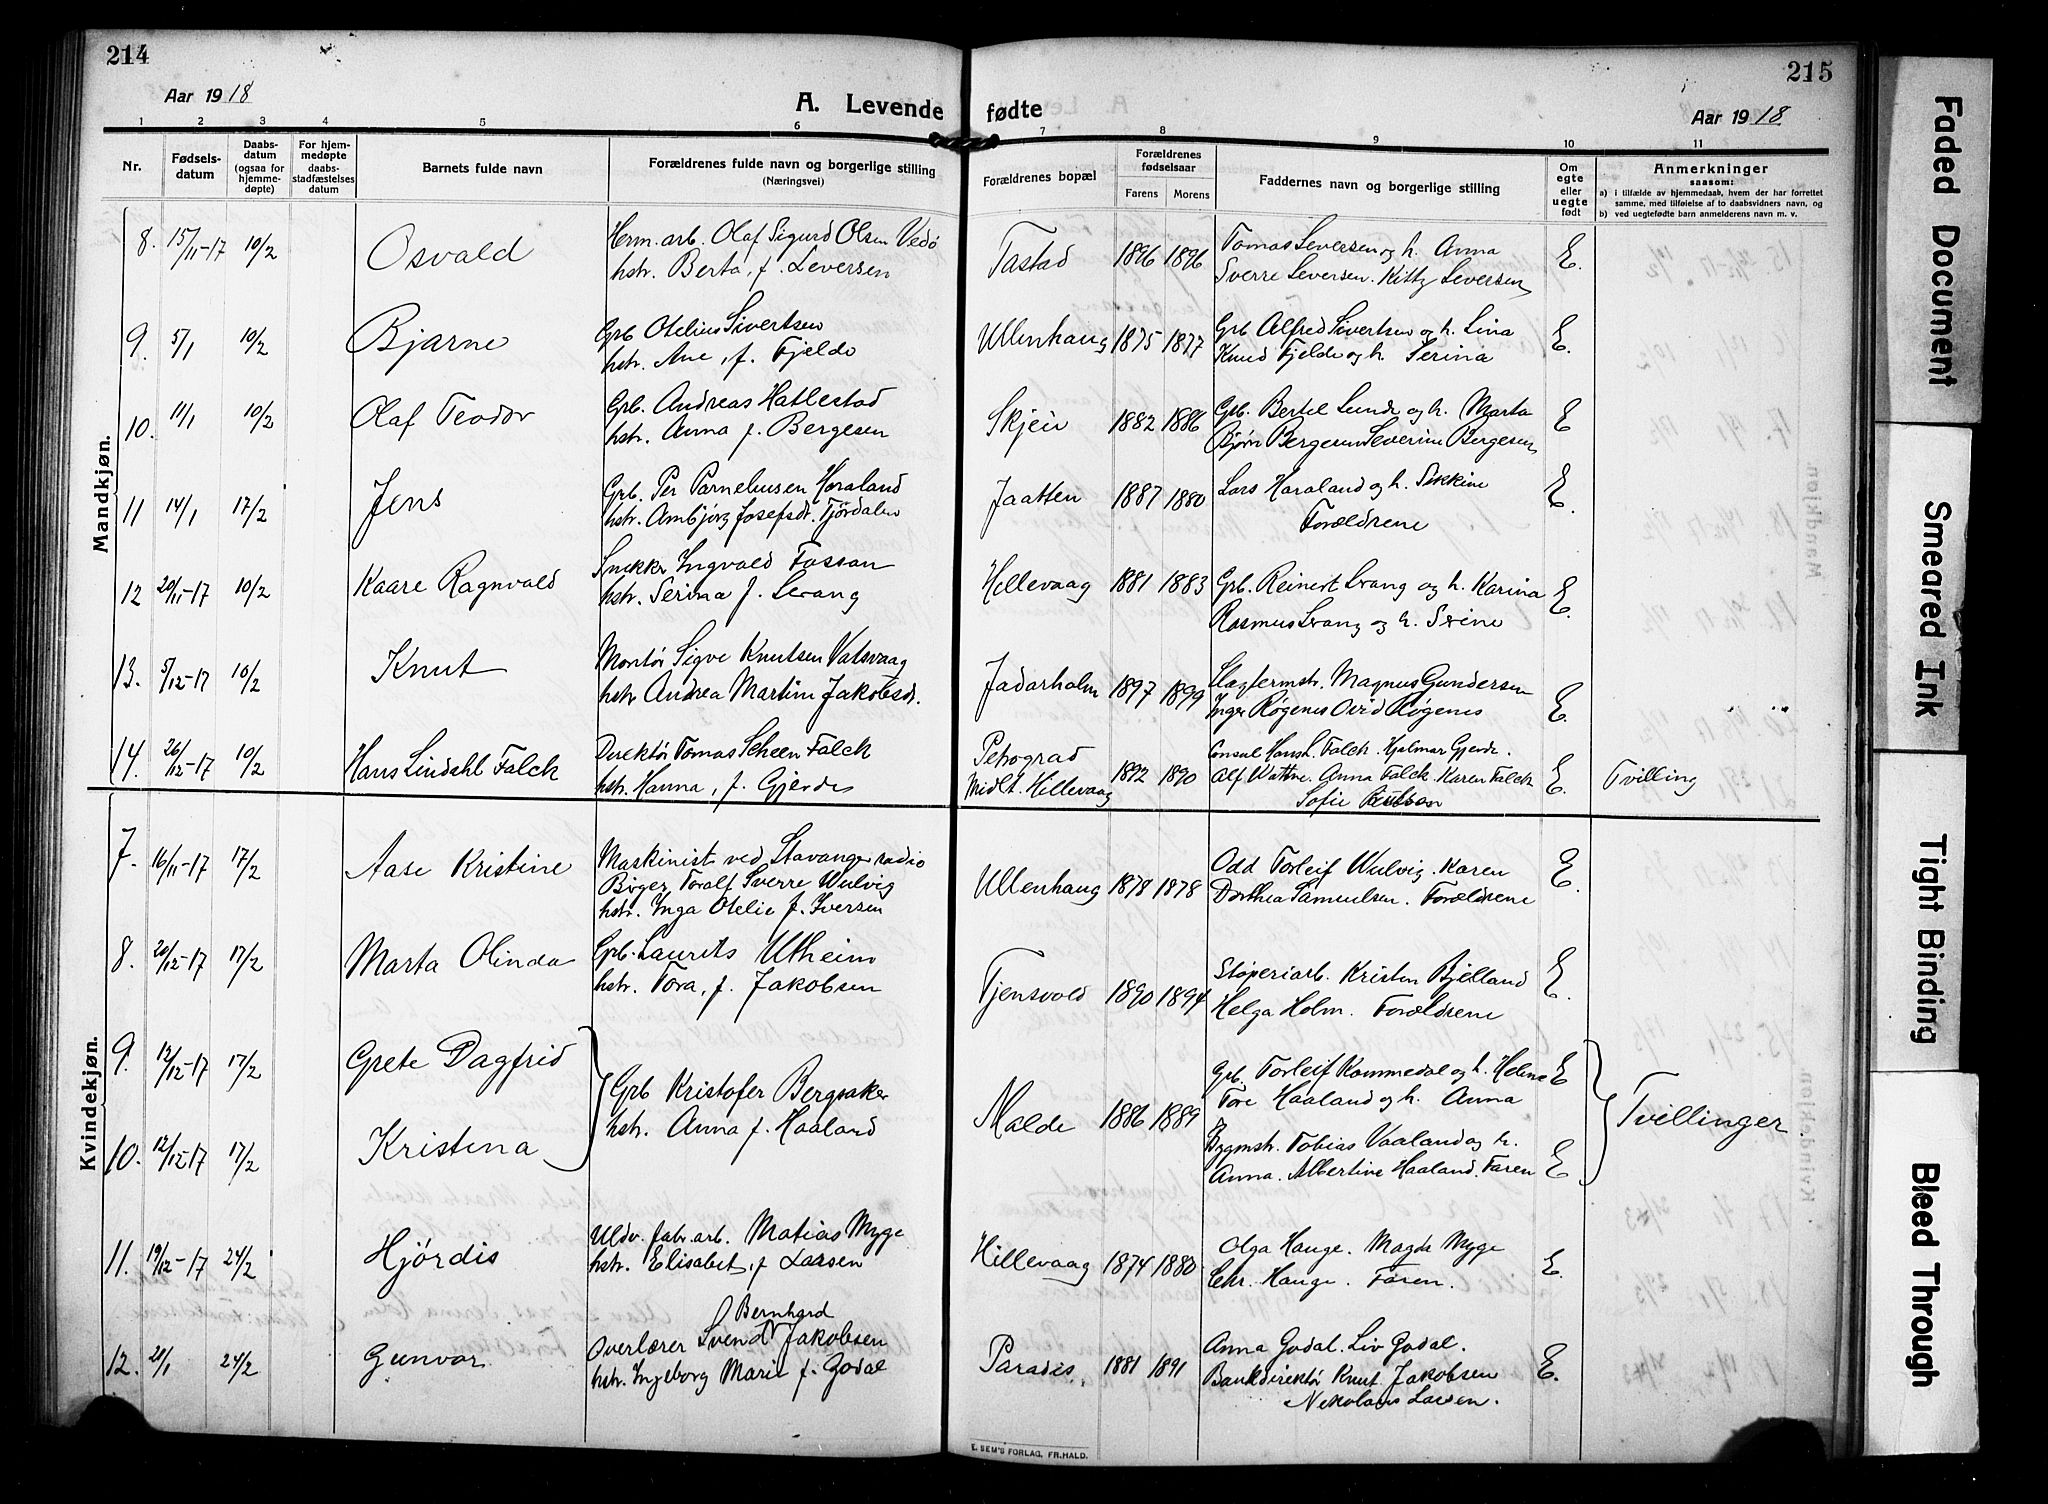 214
Aar 1918
A. Levende
1 2 3 4 5 6
Nr.
Fødsels-
datum
Daabs-
datum
(ogsaa for
hjemme-
døpte)
For hjem-
medøpte
daabs-
stadfæstelses
datum
Barnets fulde navn
Forældrenes fulde navn og borgerlige stilling
(Næringsvei)
215
fødte
Aar 1918
7 8 9 10 11
Forældrenes bopæl
Forældrenes
fødselsaar
Farens Morens
Faddernes navn og borgerlige stilling
Om
egte
eller
uegte
født
Anmerkninger
saasom:
a) i tilfælde av hjemmedaab, hvem der har forrettet
samme, med tilføielse af to daabsvidners navn, og
b) ved uegtefødte barn anmelderens navn m. v.
Mandkjøn.
8. 15/11-17 10/2 Osvald
Herm. arb. Olaf Sigurd Olsen Vedø
hstr. Berta, f. Leversen
Tastad 1896 1896
Tomas Seversen og h. Anna
Sverre Leversen. Kitty Leversen
E.
9. 5/1 10/2 Bjarne
Grb Otelius Sivertsen
hstr. Ane, f. Fjelde
Ullenhaug 1875 1877
Grb Alfred Sivertsen og h. Lina
Knud Fjelde og h. Serina
E.
10. 11/1 10/2 Olaf Teodor
Grb. Andreas Hatlestad
hstr. Anna f. Bergesen
Skjeie 1882 1886
Grb. Bertel Lunde og h. Marta
Bjørn Bergesen Severine Bergesen
E
11 14/1 17/2 Jens
Grb. Per Parneliusen Høraland
hstr. Ambjørg Josefsdt. Tjørdalen
Jaatten 1887 1880
Lars Haraland og h. Sikkine
Forældrene
E.
12 20/11-17 10/2 Kaare Ragnvald
Snekker Ingvald Fossan
hstr. Serina f. Levang
Hillevaag 1881 1883
Grb. Reinert Levang og h. Karina
Rasmus Levang og h. Serine
E.
13. 5/12-17 10/2 Knut
Montør Sigve Knutsen Vatsvaag
hstr Andrea Martine Jakobsdt.
Jadarholm 1897 1899
Slagtermstr. Magnus Gundersen
Inger Røgenes Ovid Røgenes
E.
14. 26/12-17 10/2 Hans Lindahl Falck
Direktør Tomas Scheen Falck
hstr. Hanna, f. Gjerde
Petrograd
midlt. Hillevaag 1892 1890
Consul Hans L. Falck. Hjalmar Gjerde.
Alf Wattne. Anna Falck. Karen Falck
Sofie
E. Tvilling
Kvindekjøn.
7. 16/11-17 17/2 Aase Kristine
Maskinist ved Stavanger radio
Birger Toralf Sverre Wulvig
hstr. Inga Otelie f. Iversen
Ullenhaug 1878 1878
Odd Torleif Wulvig. Karen
Dorthea Samuelsen. Forældrene
E.
8. 20/12-17 17/2 Marta Olinda
Grb. Laurits Utheim
hstr. Tora, f. Jakobsen
Tjensvold 1890 1894
Støperiarb. Kristen Bjelland
Helga Holm. Forældrene
E.
9. 12/12-17 17/2 Grete Dagfrid
10. 12/12-17 17/2 Kristina
Grb Kristofer Bergsaker
hstr. Anna f. Haaland
Malde 1886 1889
Grb. Torleif Kommedal og h. Helene
Tore Haaland og h. Anna
Bygmstr. Tobias Vaaland og h.
Anna. Albertine Haaland. Faren
E
E
Tvillinger.
11. 19/12-17 24/2 Hjørdis
Uldv. fabr. arb. Matias Myge
hstr. Elisabet, f Larsen
Hillevaag 1874 1880
Olga Hauge. Magda Myge
Chr. Hauge. Faren.
E.
12. 21/1 24/2 Gunvor
Bernhard
Overlærer Svend Jakobsen
hstr. Ingeborg Marie f. Godal
Paradis 1881 1891
Anna Godal. Liv Godal.
Bankdirektør Knut Jakobsen
Nikolaus Larsen.
E.
E. SEM'S FORLAG, FR.HALD.
Faded Document
Smeared Ink
Tight Binding
Bleed Through